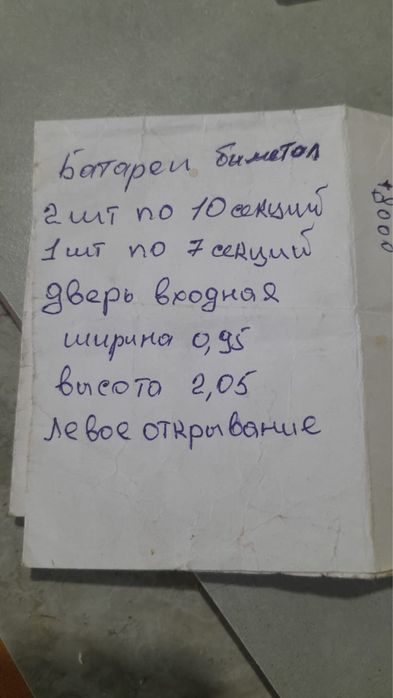 Батареи биметал
2 шт по 10 секций
1 шт по 7 секций
дверь входная
ширина 0,95
высота 2,05
левое открывание
+8000